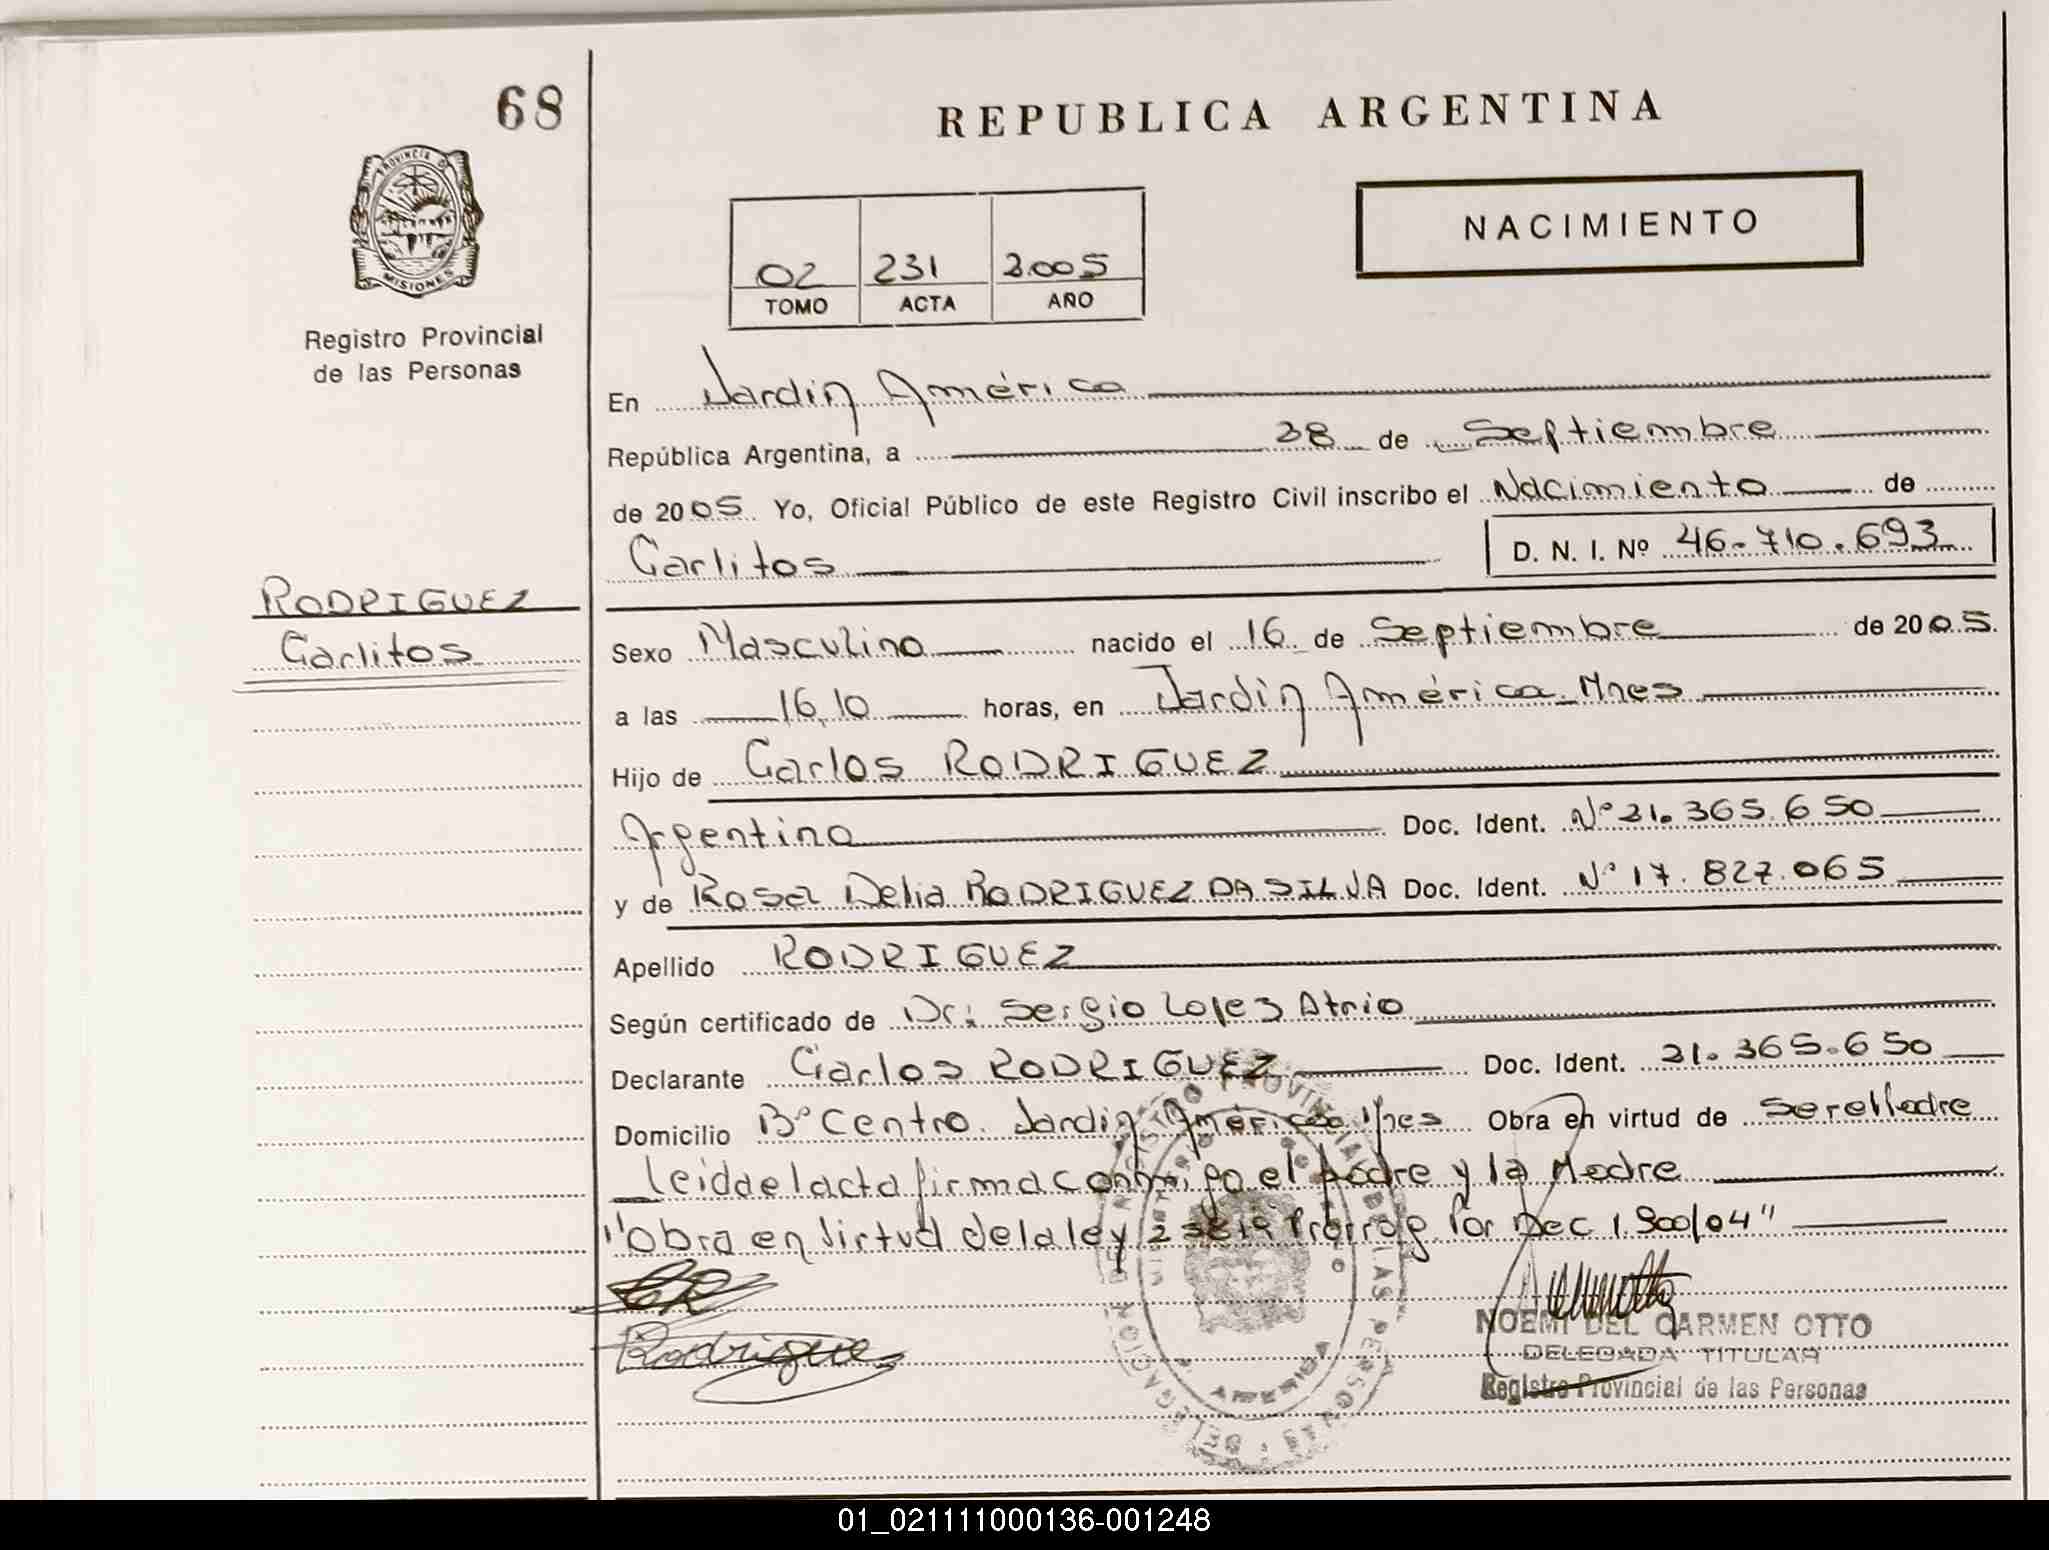 68
REPUBLICA ARGENTINA
NACIMIENTO
02 231 2005
TOMO ACTA AÑO
PROVINCIA DE
MISIONES
Registro Provincial
de las Personas
En Jardin América
República Argentina, a 28 de Septiembre
de 2005. Yo, Oficial Público de este Registro Civil inscribo el Nacimiento de
Carlitos D. N. I. Nº 46.710.693
RODRIGUEZ
Carlitos
Sexo Masculino nacido el 16 de Septiembre de 2005.
a las 16,10 horas, en Jardin América Mnes
Hijo de Carlos RODRIGUEZ
Argentino Doc. Ident. Nº 21.365.650
y de Rosa Delia RODRIGUEZ DA SILVA Doc. Ident. Nº 17.827.065
Apellido RODRIGUEZ
Según certificado de Dr: Sergio Lopez Atrio
Declarante Carlos RODRIGUEZ Doc. Ident. 21.365.650
Domicilio Bº Centro. Jardin América Mnes Obra en virtud de ser el Padre
Leida el acta firma conmigo el padre y la Madre
"Obra en virtud de la ley Prorrog. Por Dec 1.900/04"
Rodrigue
NOEMI DEL CARMEN OTTO
DELEGADA TITULAR
Registro Provincial de las Personas
01_021111000136-001248